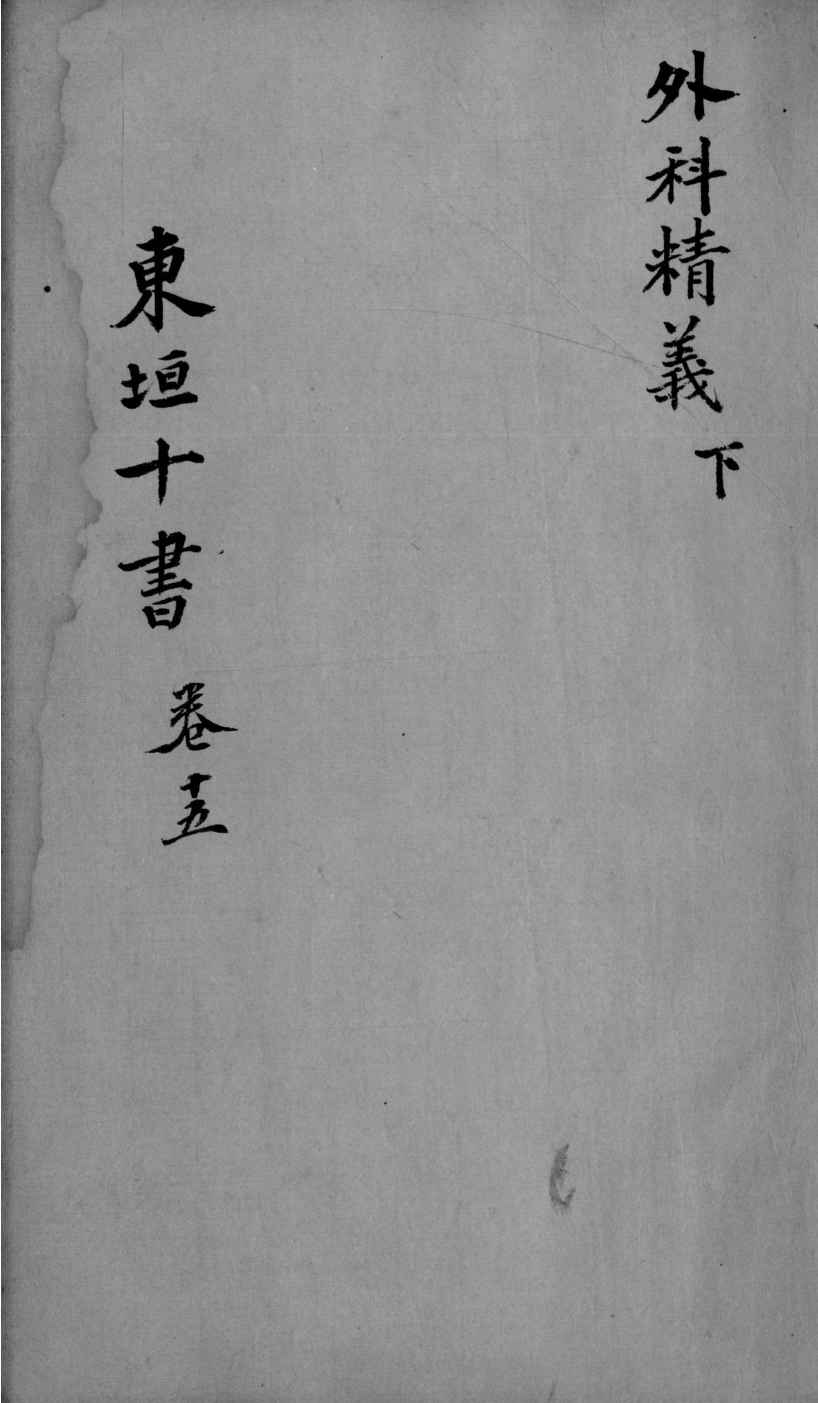 外科精義 下
東垣十書 卷十五